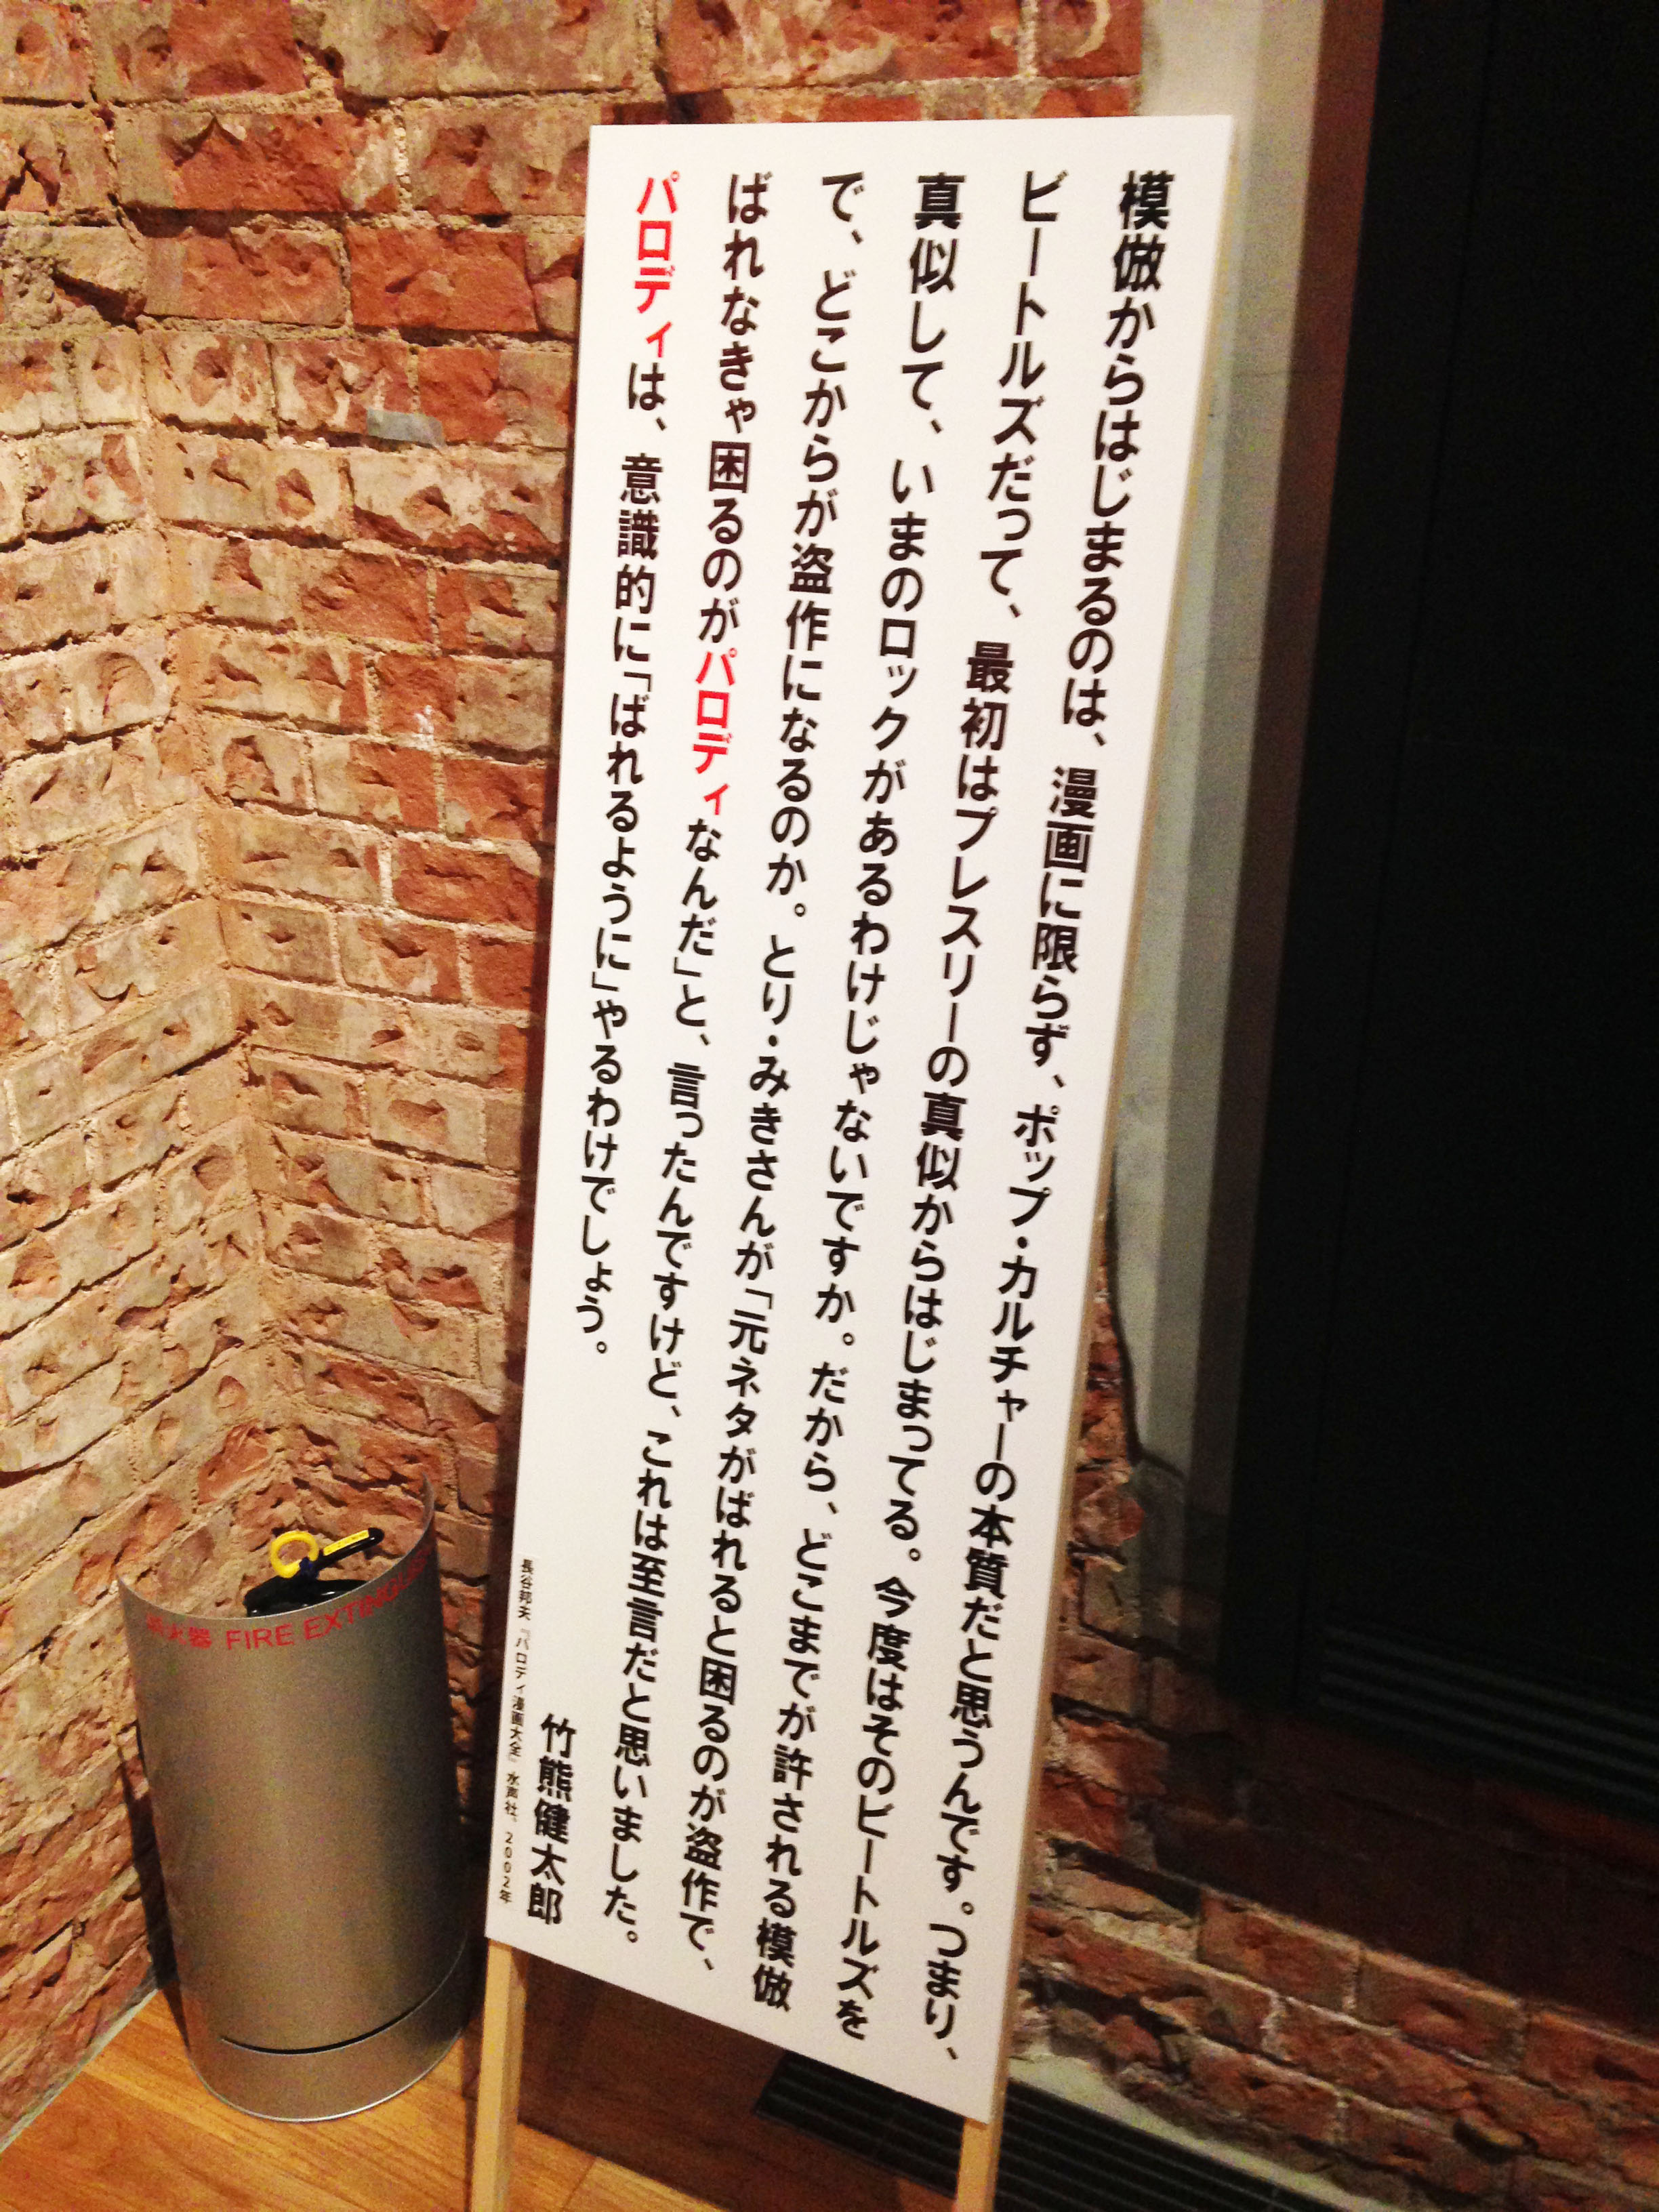 模倣からはじまるのは、漫画に限らず、ポップ・カルチャーの本質だと思うんです。つまり、
ビートルズだって、最初はプレスリーの真似からはじまってる。今度はそのビートルズを
真似して、いまのロックがあるわけじゃないですか。だから、どこまでが許される模倣
で、どこからが盗作になるのか。とり・みきさんが「元ネタがばれると困るのが盗作で、
ばれなきゃ困るのがパロディなんだ」と、言ったんですけど、これは至言だと思いました。
パロディは、意識的に「ばれるように」やるわけでしょう。
竹熊健太郎
長谷邦夫『パロディ漫画大全』水声社、2002年
火器 FIRE EXTINGU